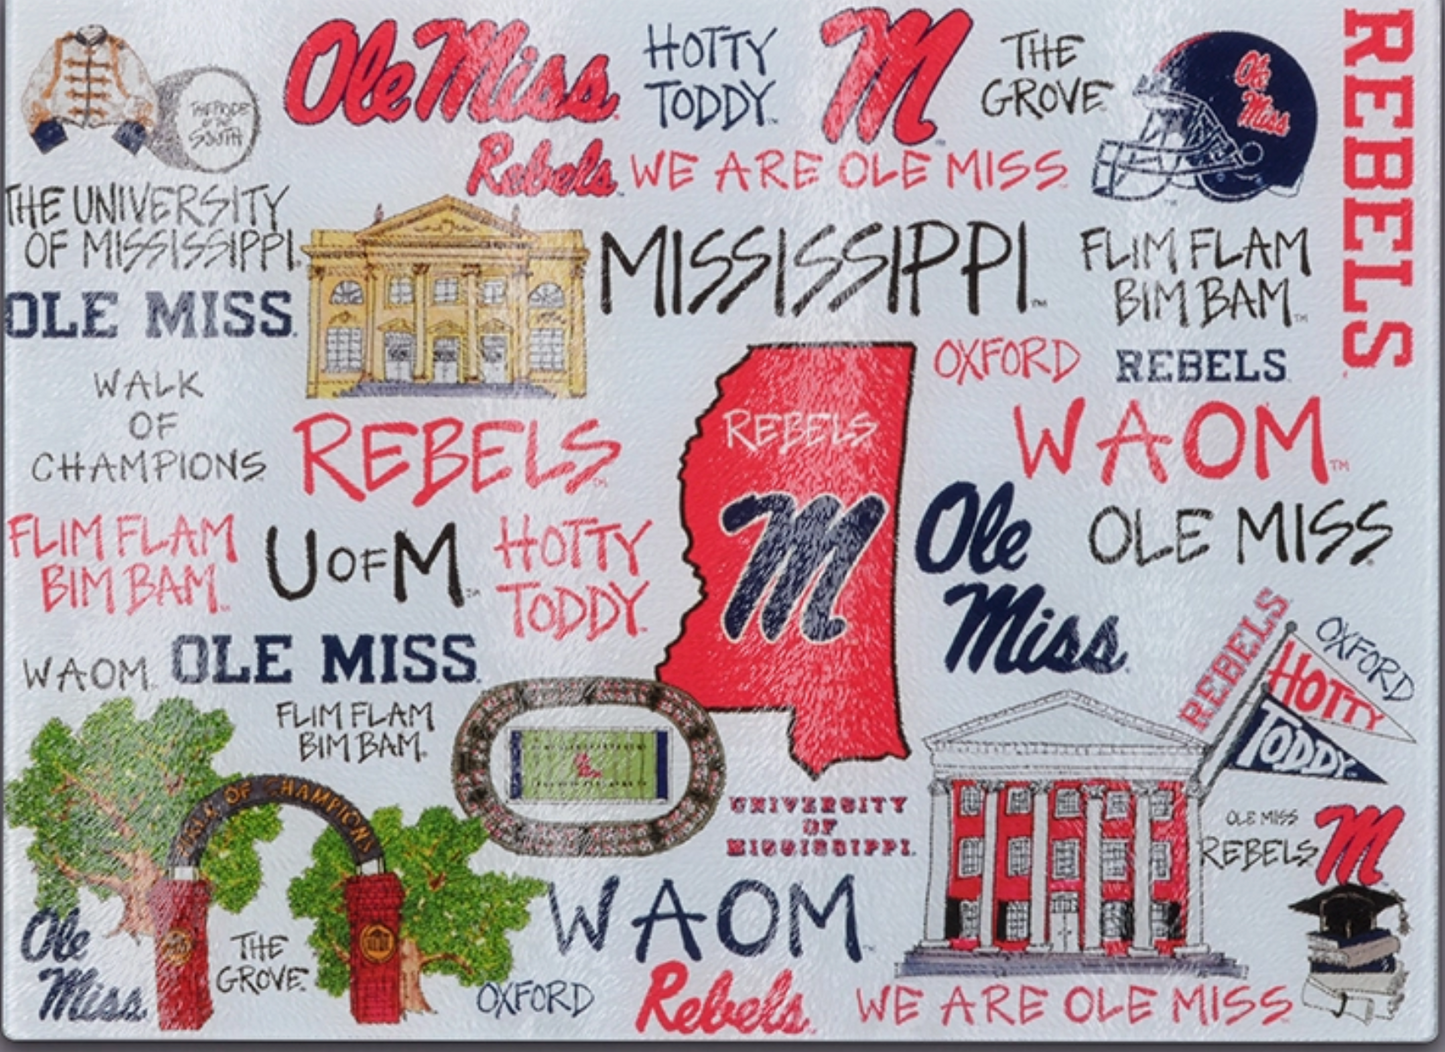 THE PRIDE
OF THE
SOUTH
Ole Miss
Rebels
HOTTY
TODDY
M
THE
GROVE
Ole
Miss
REBELS
WE ARE OLE MISS
THE UNIVERSITY
OF MISSISSIPPI
OLE MISS
MISSISSIPPI
FLIM FLAM
BIM BAM
OXFORD
REBELS
WALK
OF
CHAMPIONS
REBELS
REBELS
M
WAOM
Ole
Miss
OLE MISS
FLIM FLAM
BIM BAM
U OF M
HOTTY
TODDY
WAOM
OLE MISS
FLIM FLAM
BIM BAM
REBELS
OXFORD
HOTTY
TODDY
UNIVERSITY
OF
MISSISSIPPI
OLE MISS
REBELS
M
WALK OF CHAMPIONS
Ole
Miss
THE
GROVE
WAOM
OXFORD
Rebels
WE ARE OLE MISS